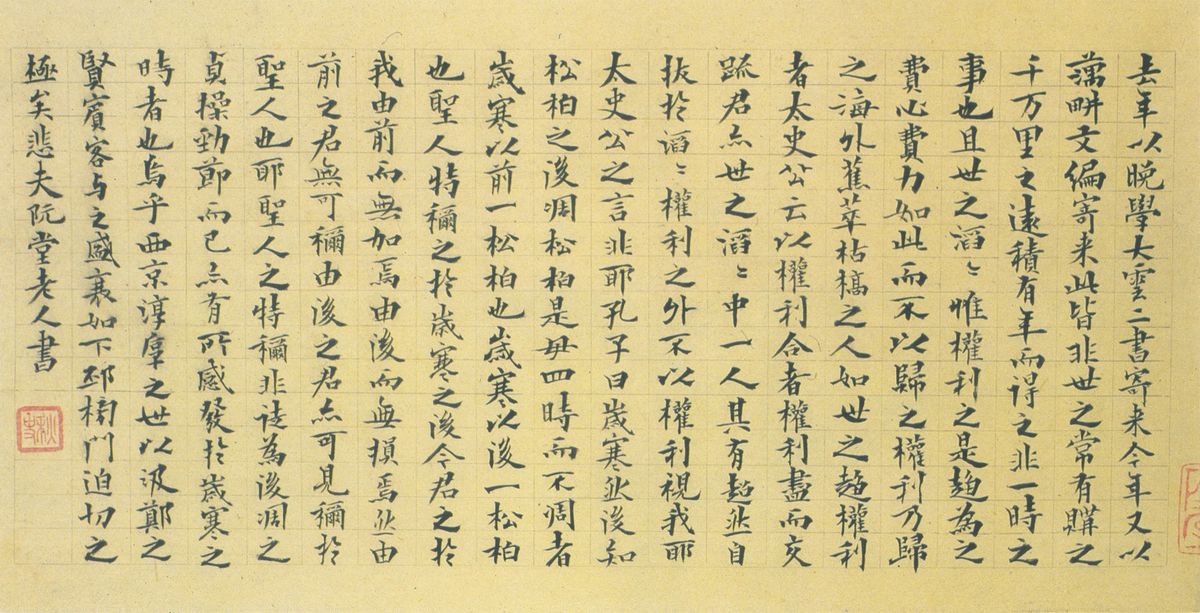 去年以晚學大雲二書寄来今年又以
藕畊文編寄来此皆非世之常有購之
千万里之遠積有年而得之非一時之
事也且世之滔〻惟權利之是趨為之
費心費力如此而不以歸之權利乃歸
之海外蕉萃枯槁之人如世之趨權利
者太史公云以權利合者權利盡而交
踈君亦世之滔〻中一人其有超然自
拔於滔〻權利之外不以權利視我耶
太史公之言非耶孔子曰歲寒然後知
松柏之後凋松柏是毋四時而不凋者
歲寒以前一松柏也歲寒以後一松柏
也聖人特稱之於歲寒之後今君之於
我由前而無加焉由後而無損焉然由
前之君無可稱由後之君亦可見稱於
聖人也耶聖人之特稱非徒為後凋之
貞操勁節而已亦有所感發於歲寒之
時者也烏乎西京淳厖之世以汲鄭之
賢賓客与之盛衰如下邳榜門迫切之
極矣悲夫阮堂老人書
秋史